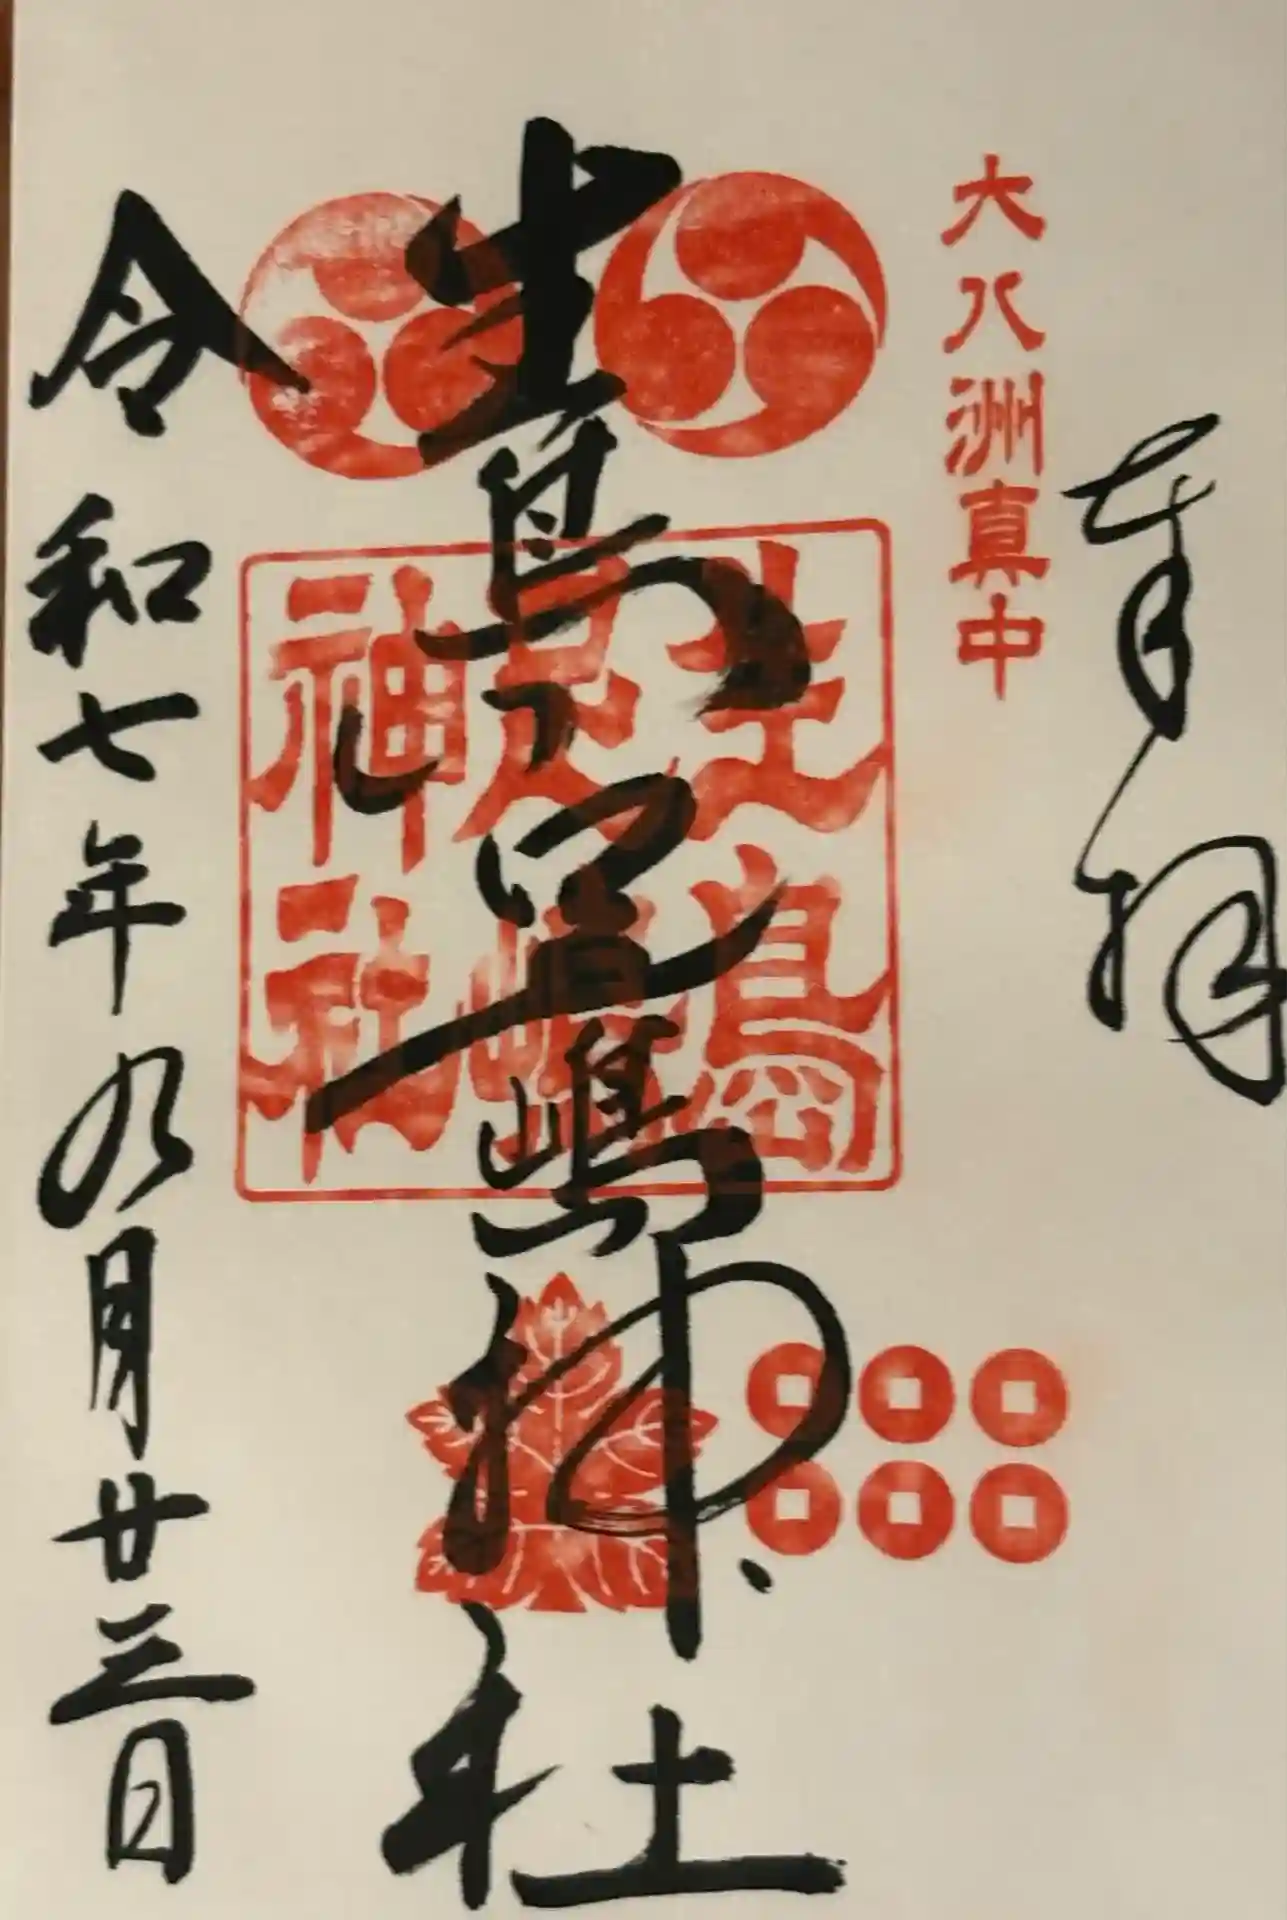 奉拝
大八洲真中
生島足嶋神社
生島足嶋神社
令和七年九月廿三日